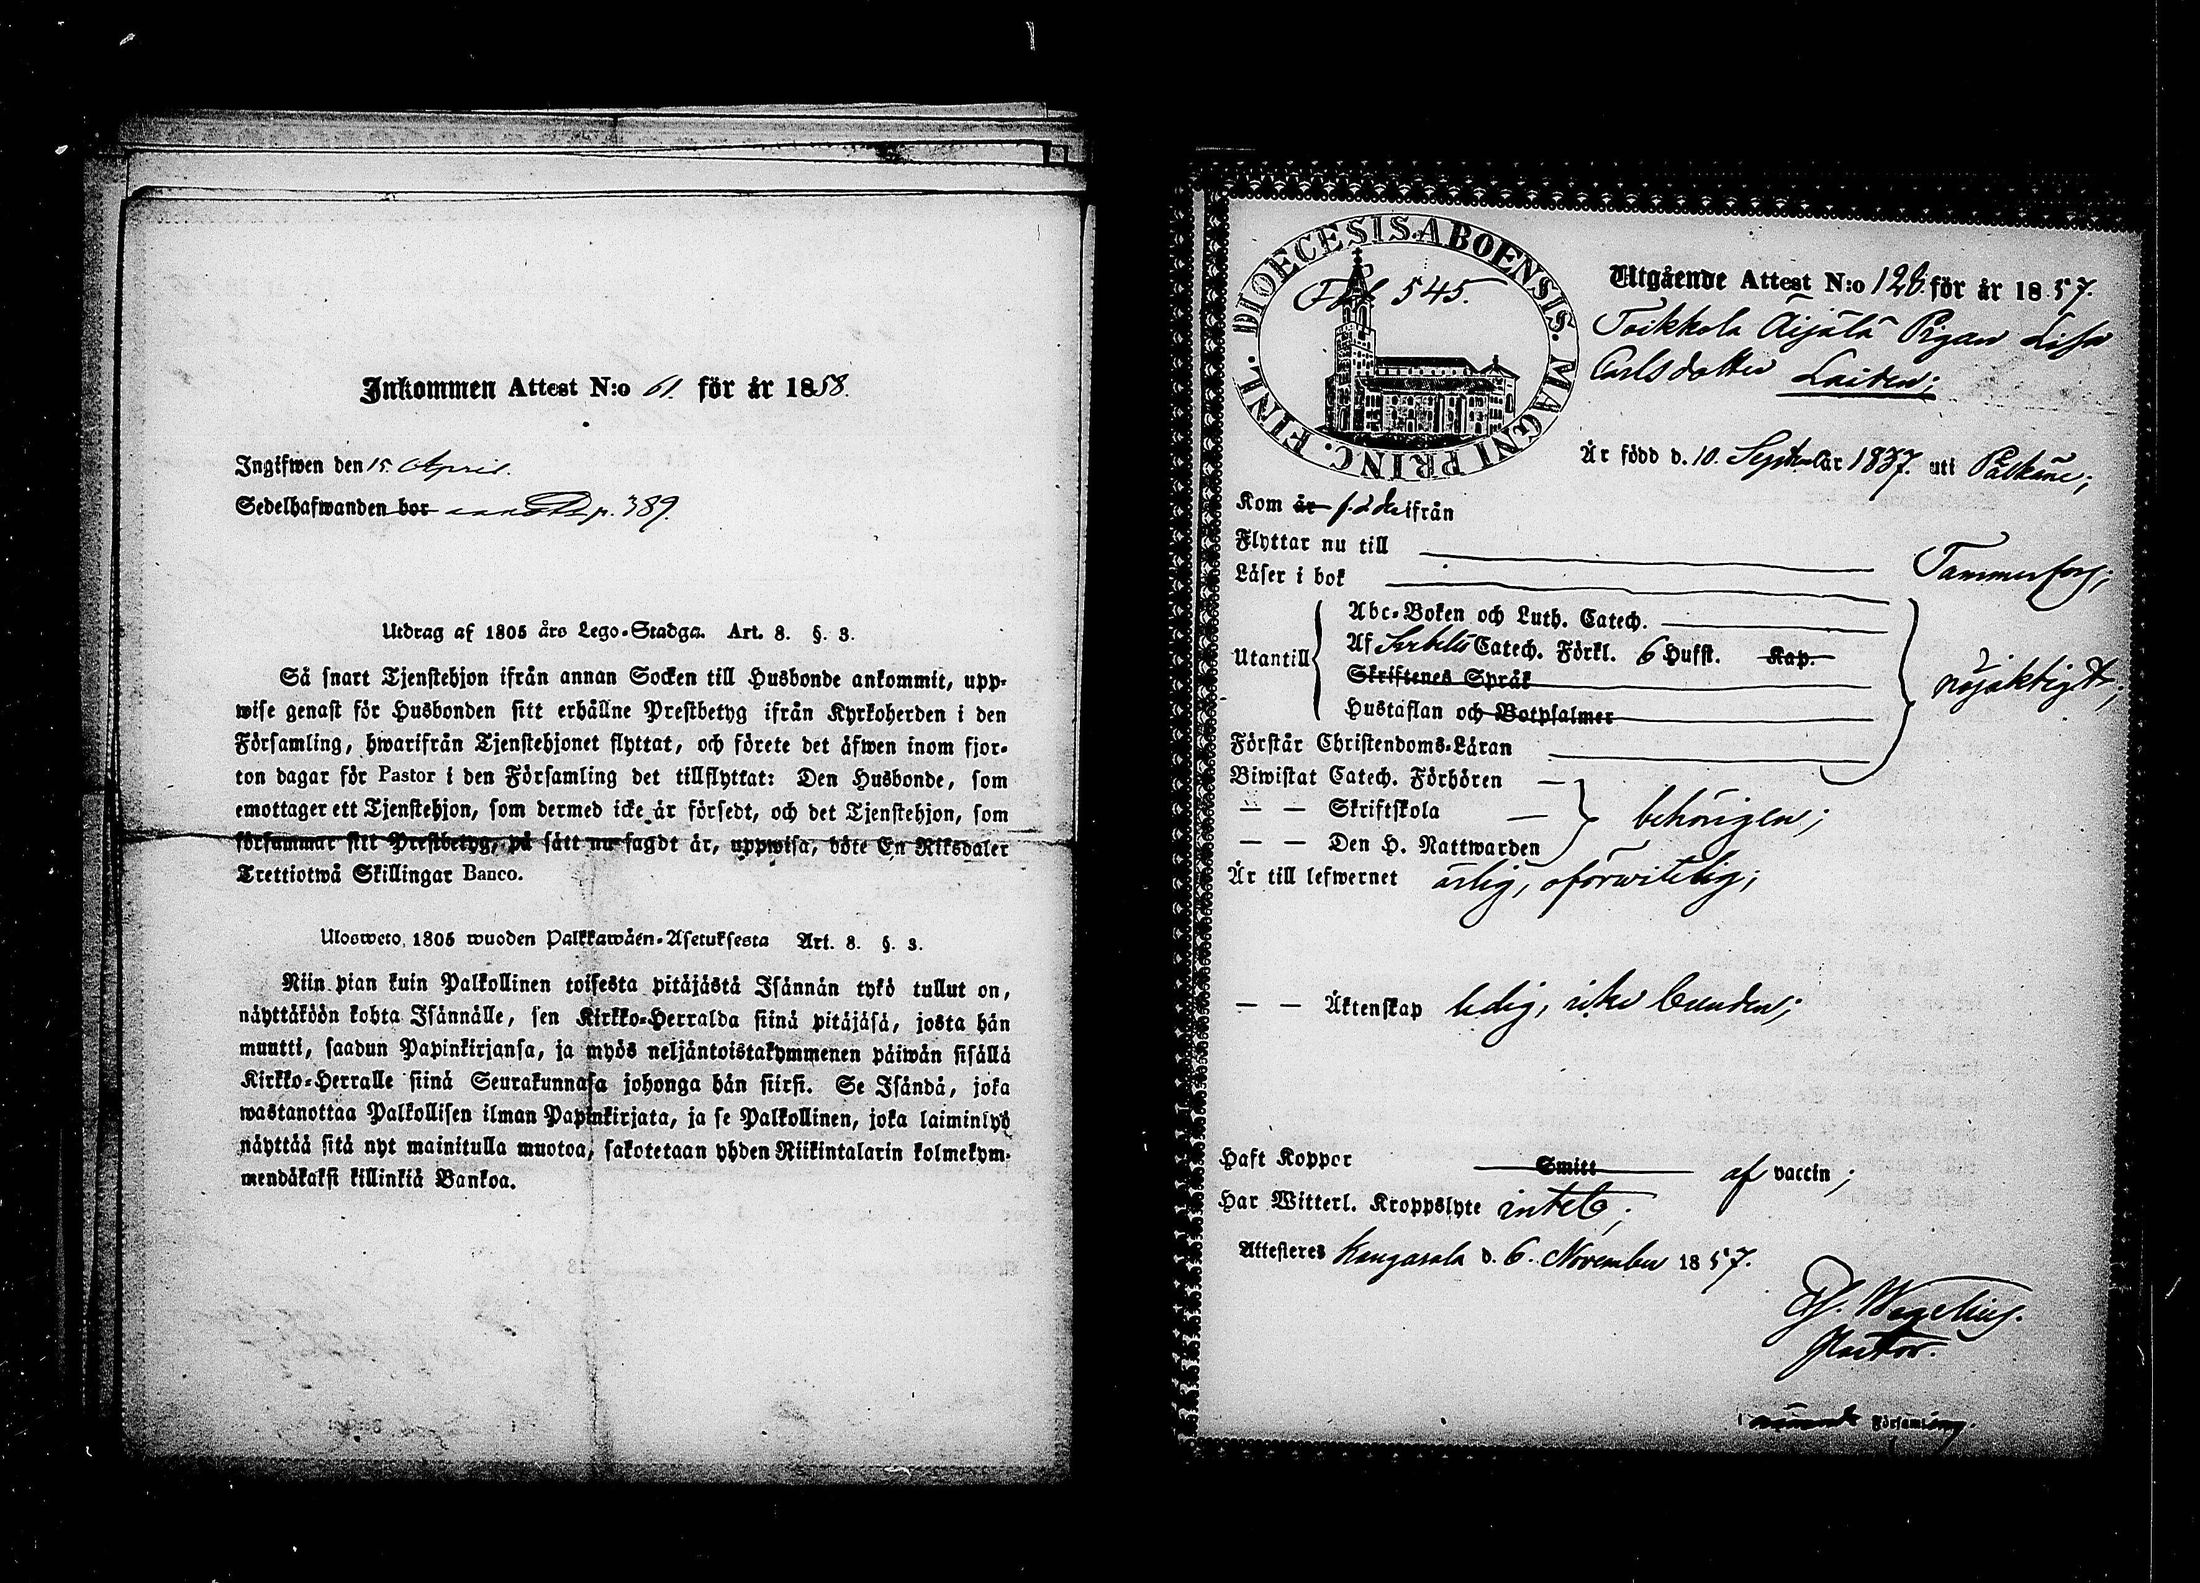 Inkommen Attest N:o 61. för år 1858.
Ingifwen den 15. April.
Sedelhafwanden bor p. 389.
Utdrag af 1805 års Lego-Stadga. Art. 8. §. 3.
Så snart Tjenstehjon ifrån annan Socken till Husbonde ankommit, upp-
wise genast för Husbonden sitt erhållne Prestbetyg ifrån Kyrkoherden i den
Församling, hwarifrån Tjenstehjonet flyttat, och förete det äfwen inom fjor-
ton dagar för Pastor i den Församling det tillflyttat: Den Husbonde, som
emottager ett Tjenstehjon, som dermed icke är försedt, och det Tjenstehjon, som
försummar sitt Prestbetyg, på sätt nu sagdt är, uppwisa, böte En Riksdaler
Trettiotwå Skillingar Banco.
Ulosweto, 1805 wuoden Palkkawäen-Asetuksesta Art. 8. §. 3.
Niin pian kuin Palkollinen toisesta pitäjästä Isännän tykö tullut on,
näyttäköön kohta Isännälle, sen Kirkko-Herralda siinä pitäjäsä, josta hän
muutti, saadun Papinkirjansa, ja myös neljäntoistakymmenen päiwän sisällä
Kirkko-Herralle siinä Seurakunnasa johonga hän siirsi. Se Isändä, joka
wastanottaa Palkollisen ilman Papinkirjata, ja se Palkollinen, joka laiminlyö
näyttää sitä nyt mainitulla muotoa, sakotetaan yhden Riikintalarin kolmekym-
mendäkaksi killinkiä Bankoa.
DIOECESIS. ABOENSIS. MAGNI PRINC. FINL.
Fol 545.
Utgående Attest N:o 128. för år 1857.
Toikkola Äijälä Pigan Lisa
Carlsdotter Laiden;
Är född d. 10. September 1837. uti Pälkäne;
Kom år födde ifrån
Flyttar nu till Tammerfors;
Läser i bok
Utantill
Abc-Boken och Luth. Catech.
Af Catech. Förkl. 6 Hufst. Kap.
Skriftenes Språk
Hustaflan och Botpsalmer
nöjaktigt;
Förstår Christendoms-Läran
Biwistat Catech. Förhören —
— — Skriftskola — behörigen;
— — Den H. Nattwarden
Är till lefwernet ärlig, oförwitelig;
— — Äktenskap ledig, icke bunden;
Haft Koppor Smitt af vaccin;
Har Witterl. Kroppslyte intet;
Attesteres Kangasala d. 6. November 1857.
Wegelius.
Pastor.
i Församling.